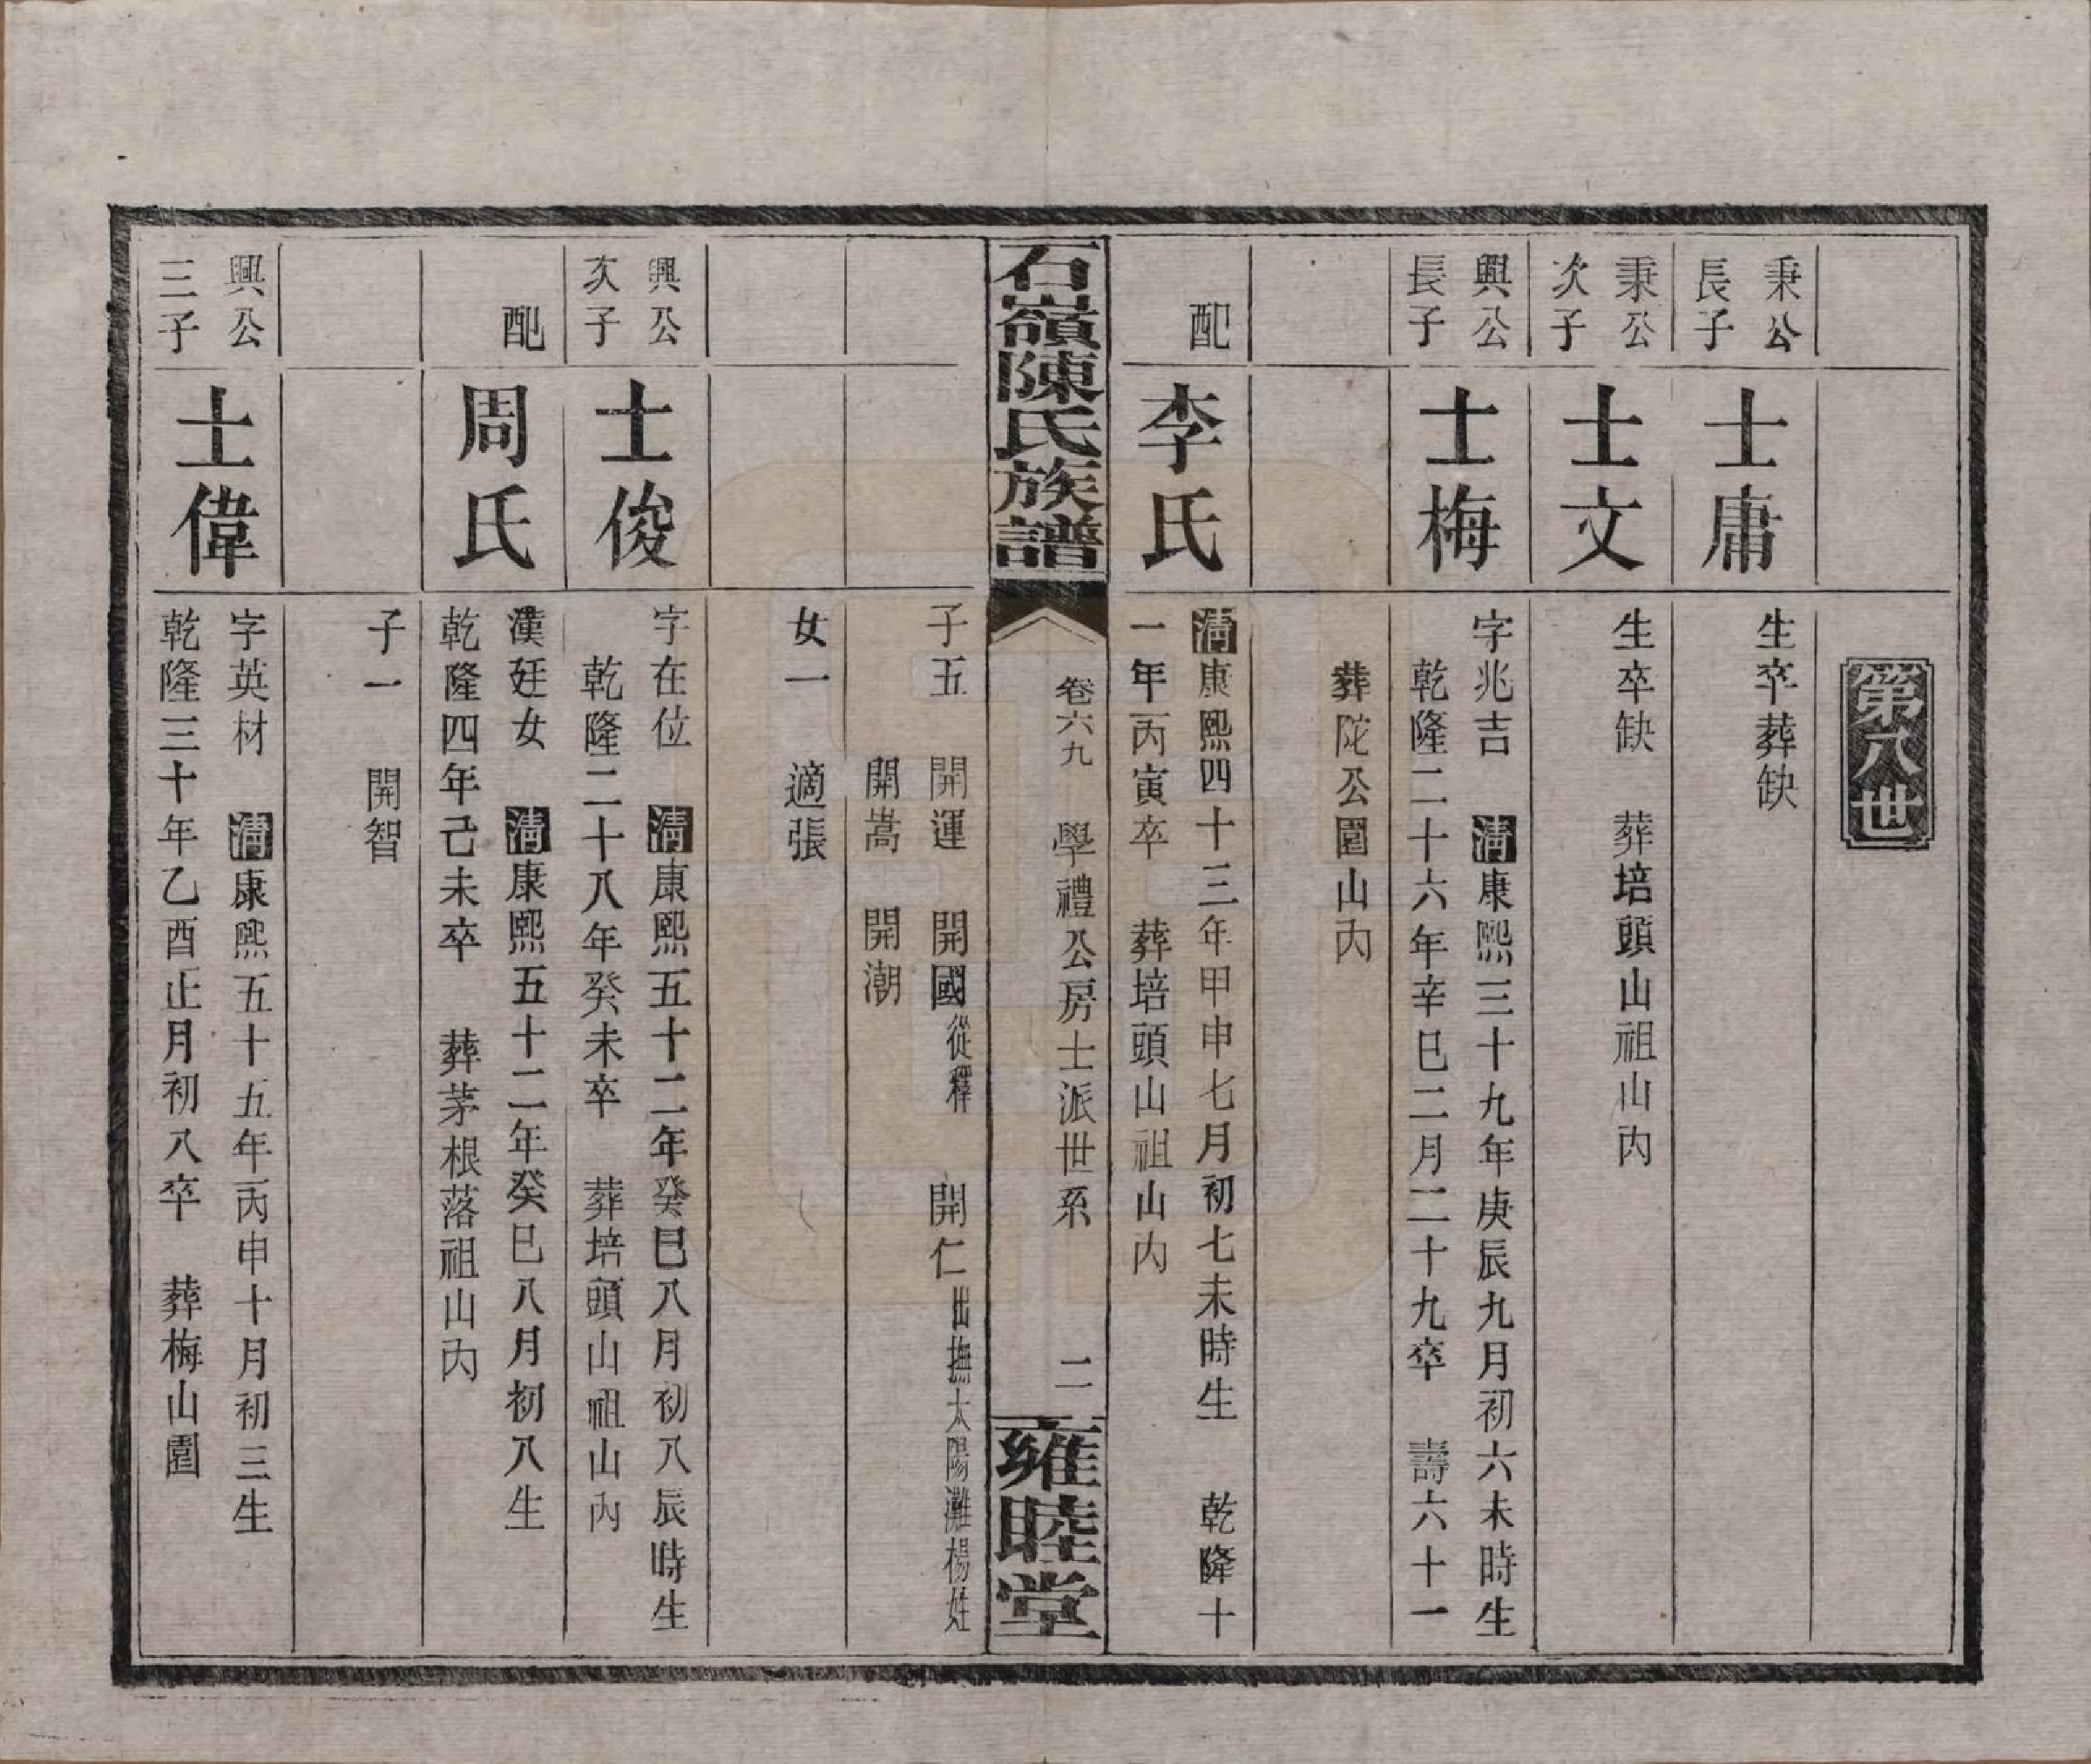 第八世
秉公
長子
士庸
生卒葬缺
秉公
次子
士文
生卒缺　葬培頭山祖山內
興公
長子
士梅
字兆吉　清康熙三十九年庚辰九月初六未時生
乾隆二十六年辛巳二月二十九卒　壽六十一
葬陀公園山內
配
李氏
清康熙四十三年甲申七月初七未時生　乾隆十
一年丙寅卒　葬培頭山祖山內
石嶺陳氏族譜
卷六九　學禮公房士派世系
二
雍睦堂
子五　開運　開國從釋　開仁出撫太陽灘楊姓
開嵩　開潮
女一　適張
興公
次子
士俊
字在位　清康熙五十二年癸巳八月初八辰時生
乾隆二十八年癸未卒　葬培頭山祖山內
配
周氏
漢廷女　清康熙五十二年癸巳八月初八生
乾隆四年己未卒　葬茅根落祖山內
子一　開智
興公
三子
士偉
字英材　清康熙五十五年丙申十月初三生
乾隆三十年乙酉正月初八卒　葬梅山園